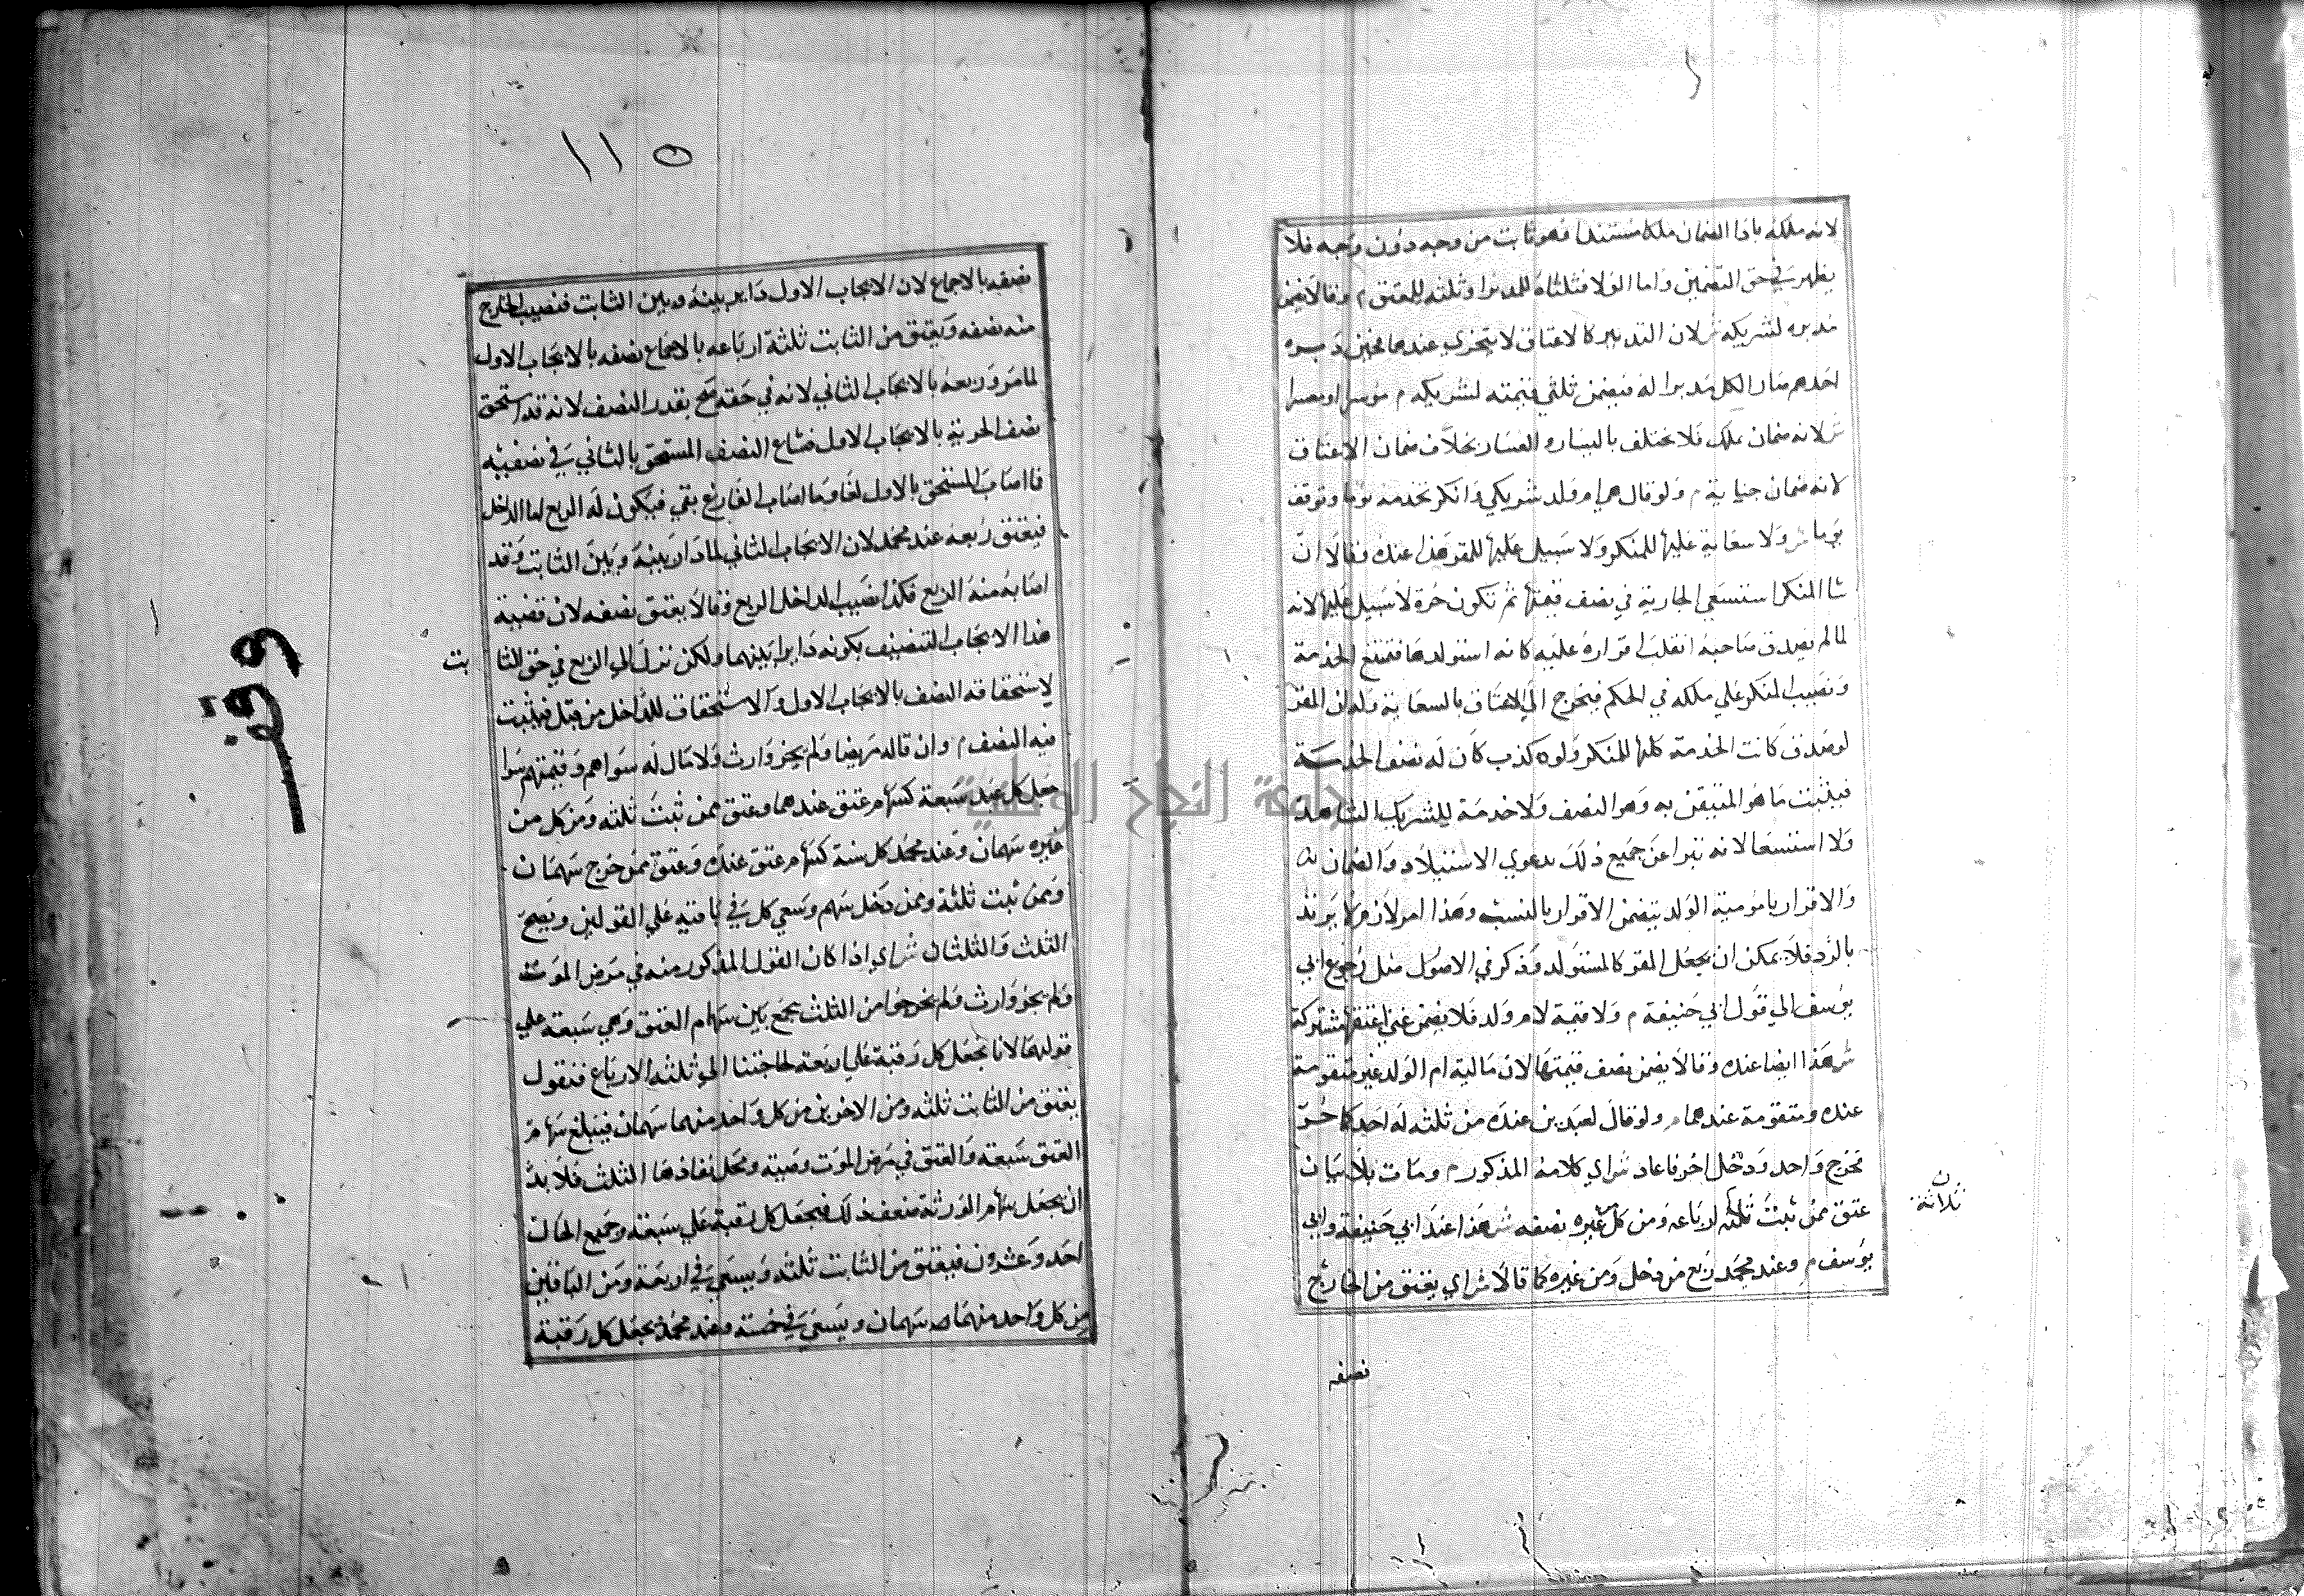 لانه ملكه باذا الضمان ملكا مستندا فهو ثابت من وجه دون وجه فلا
يظهر في حق التضمين واما الولا فثلثاه للمدبر وثلثه للمعتق م وقالا يضمن
مدبره لشريكه ش لان التدبير كالاعتاق لا يتجزي عندهما فحين دبره
احدهم صار الكل مدبرا له فيضمن ثلثي قيمته لشريكيه م موسرا او معسرا
ش لانه ضمان تملك فلا يختلف باليسار والعسار بخلاف ضمان الاعتاق
لانه ضمان جناية م ولو قال هي ام ولد شريكي وانكر تخدمه يوما وتوقف
يوما ش ولا سعاية عليها للمنكر ولا سبيل عليها للمقر هذا عنده وقالا ان
شا المنكر استسعي الجارية في نصف قيمتها ثم تكون حرة لا سبيل عليها لانه
لما لم يصدق صاحبه انقلب اقراره عليه كانه استولدها فتمتنع الخدمة
ونصيب المنكر علي ملكه في الحكم فيخرج الي الاعتاق بالسعاية وله ان المقر
لو صدق كانت الخدمة كلها للمنكر ولو كذب كان له نصف الخدمة
فيثبت ما هو المتيقن به وهو النصف ولا خدمة للشريك الشاهد
ولا استسعا لانه تبرا عن جميع ذلك بدعوي الاستيلاد والضمان
والاقرار بامومية الولد يتضمن الاقرار بالنسب وهذا امر لازم لا يرتد
بالرد فلا يمكن ان يجعل المقر كالمستولد وذكر في الاصول مثل رجوع ابي
يوسف الي قول ابي حنيفة م ولا قيمة لام ولد فلا يضمن غني اعتقها مشتركة
ش هذا ايضا عنده وقالا يضمن نصف قيمتها لان مالية ام الولد غير متقومة
عنده ومتقومة عندهما م ولو قال لعبدين عنده من ثلثه له احدكما حر
فخرج واحد ودخل اخر فاعاد ش اي كلامه المذكور م ومات بلا بيان
عتق ممن ثبت ثلثه ارباعه ومن كل غيره نصفه ش هذا عند ابي حنيفة وابي
ثلاثة
يوسف م وعند محمد ربع من دخل ومن غيره كما قالا ش اي يعتق من الخارج
نصفه
١١٥
نصفه بالاجماع لان الايجاب الاول داير بينه وبين الثابت فنصيب الخارج
منه نصفه ويعتق من الثابت ثلثة ارباعه بالاجماع نصفه بالايجاب الاول
لما مر وربعه بالايجاب الثاني لانه في حقه صح بقدر النصف لانه قد استحق
نصف الحرية بالايجاب الاول فشاع النصف المستحق بالثاني في نصفيه
فما اصاب المستحق بالاول لغا وما اصاب الفارغ بقي فيكون له الربع اما الداخل
فيعتق ربعه عند محمد لان الايجاب الثاني لما دار بينه وبين الثابت وقد
اصابه منه الربع فكذا نصيب الداخل الربع وقالا يعتق نصفه لان قضية
هذا الايجاب التنصيف بكونه دايرا بينهما ولكن نزل الي الربع في حق الثا
بت
لاستحقاقه النصف بالايجاب الاول ولا استحقاق للداخل من قبل فيثبت
فيه النصف م وان قاله مريضا ولم يجز وارث ولا مال له سواهم وقيمتهم سوا
جعل كل عبد سبعة كسهام عتق عندهما وعتق ممن ثبت ثلثه ومن كل من
غيره سهمان وعند محمد كل ستة كسهام عتق عنده وعتق ممن خرج سهمان
وممن ثبت ثلثة وممن دخل سهم وسعي كل في باقيه علي القولين ويصح
الثلث والثلثان ش اي اذا كان القول المذكور منه في مرض الموت
ولم يجز وارث ولم يخرجوا من الثلث يجمع بين سهام العتق وهي سبعة علي
قولهما لانا نجعل كل رقبة علي اربعة لحاجتنا الي ثلثه الارباع فنقول
يعتق من الثابت ثلثه ومن الاخرين من كل واحد منهما سهمان فيبلغ سهام
العتق سبعة والعتق في مرض الموت وصية ومحل نفاذها الثلث فلا بد
ان يجعل سهام الورثة ضعف ذلك فيجعل كل رقبة علي سبعة وجميع المال
احد وعشرون فيعتق من الثابت ثلثه ويسعي في اربعة ومن الباقين
من كل واحد منهما سهمان ويسعي في خمسة وعند محمد يجعل كل رقبة
وقف
جامعة النجاح الوطنية